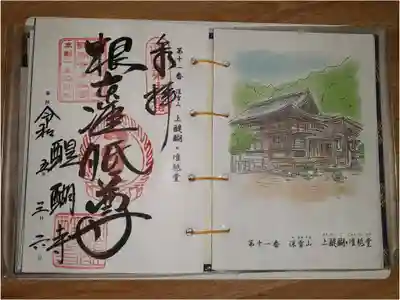 奉拝
第十一番 深雪山 上醍醐・准胝堂
根本准胝尊
醍醐寺
令和五、三、六
第十一番 深雪山 上醍醐・准胝堂